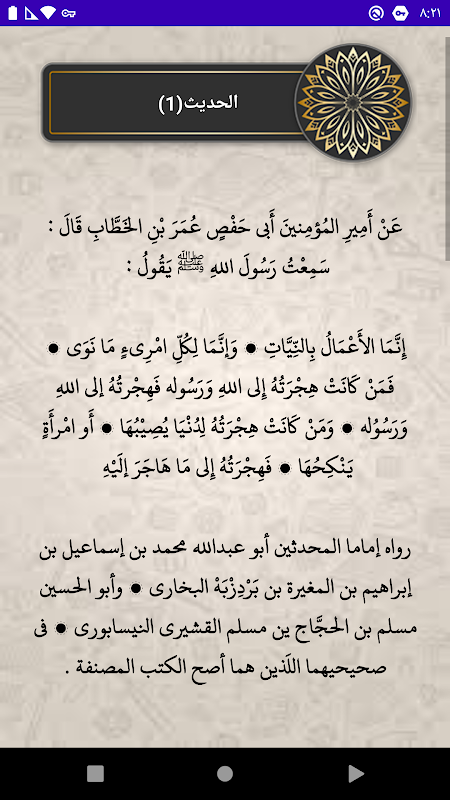 ٨:٢١
الحديث(1)
عَنْ أَمِيرِ المُؤمِنينَ أَبى حَفْصٍ عُمَرَ بْنِ الخَطَّابِ قَالَ :
سَمِعْتُ رَسُولَ اللهِ ﷺ يَقُولُ :
إِنَّمَا الأَعْمَالُ بِالنِّيَّاتِ • وَإنَّمَا لِكُلِّ امْرِىءٍ مَا نَوَى •
فَمَنْ كَانَتْ هِجْرَتُهُ إِلى اللهِ وَرَسُوله فَهِجْرتُهُ إلى اللهِ
وَرَسُوُله • وَمَنْ كَانَتْ هِجْرَتُهُ لِدُنْيَا يُصِيْبُهَا • أَو امْرأَةٍ
يَنْكِحُهَا • فَهِجْرَتُهُ إِلى مَا هَاجَرَ إلَيْهِ
رواه إماما المحدثين أبو عبدالله محمد بن إسماعيل بن
إبراهيم بن المغيرة بن بَرْدِزْبَهْ البخارى • وأبو الحسين
مسلم بن الحجَّاج ين مسلم القشيرى النيسابورى • فى
صحيحيهما اللَذين هما أصح الكتب المصنفة .